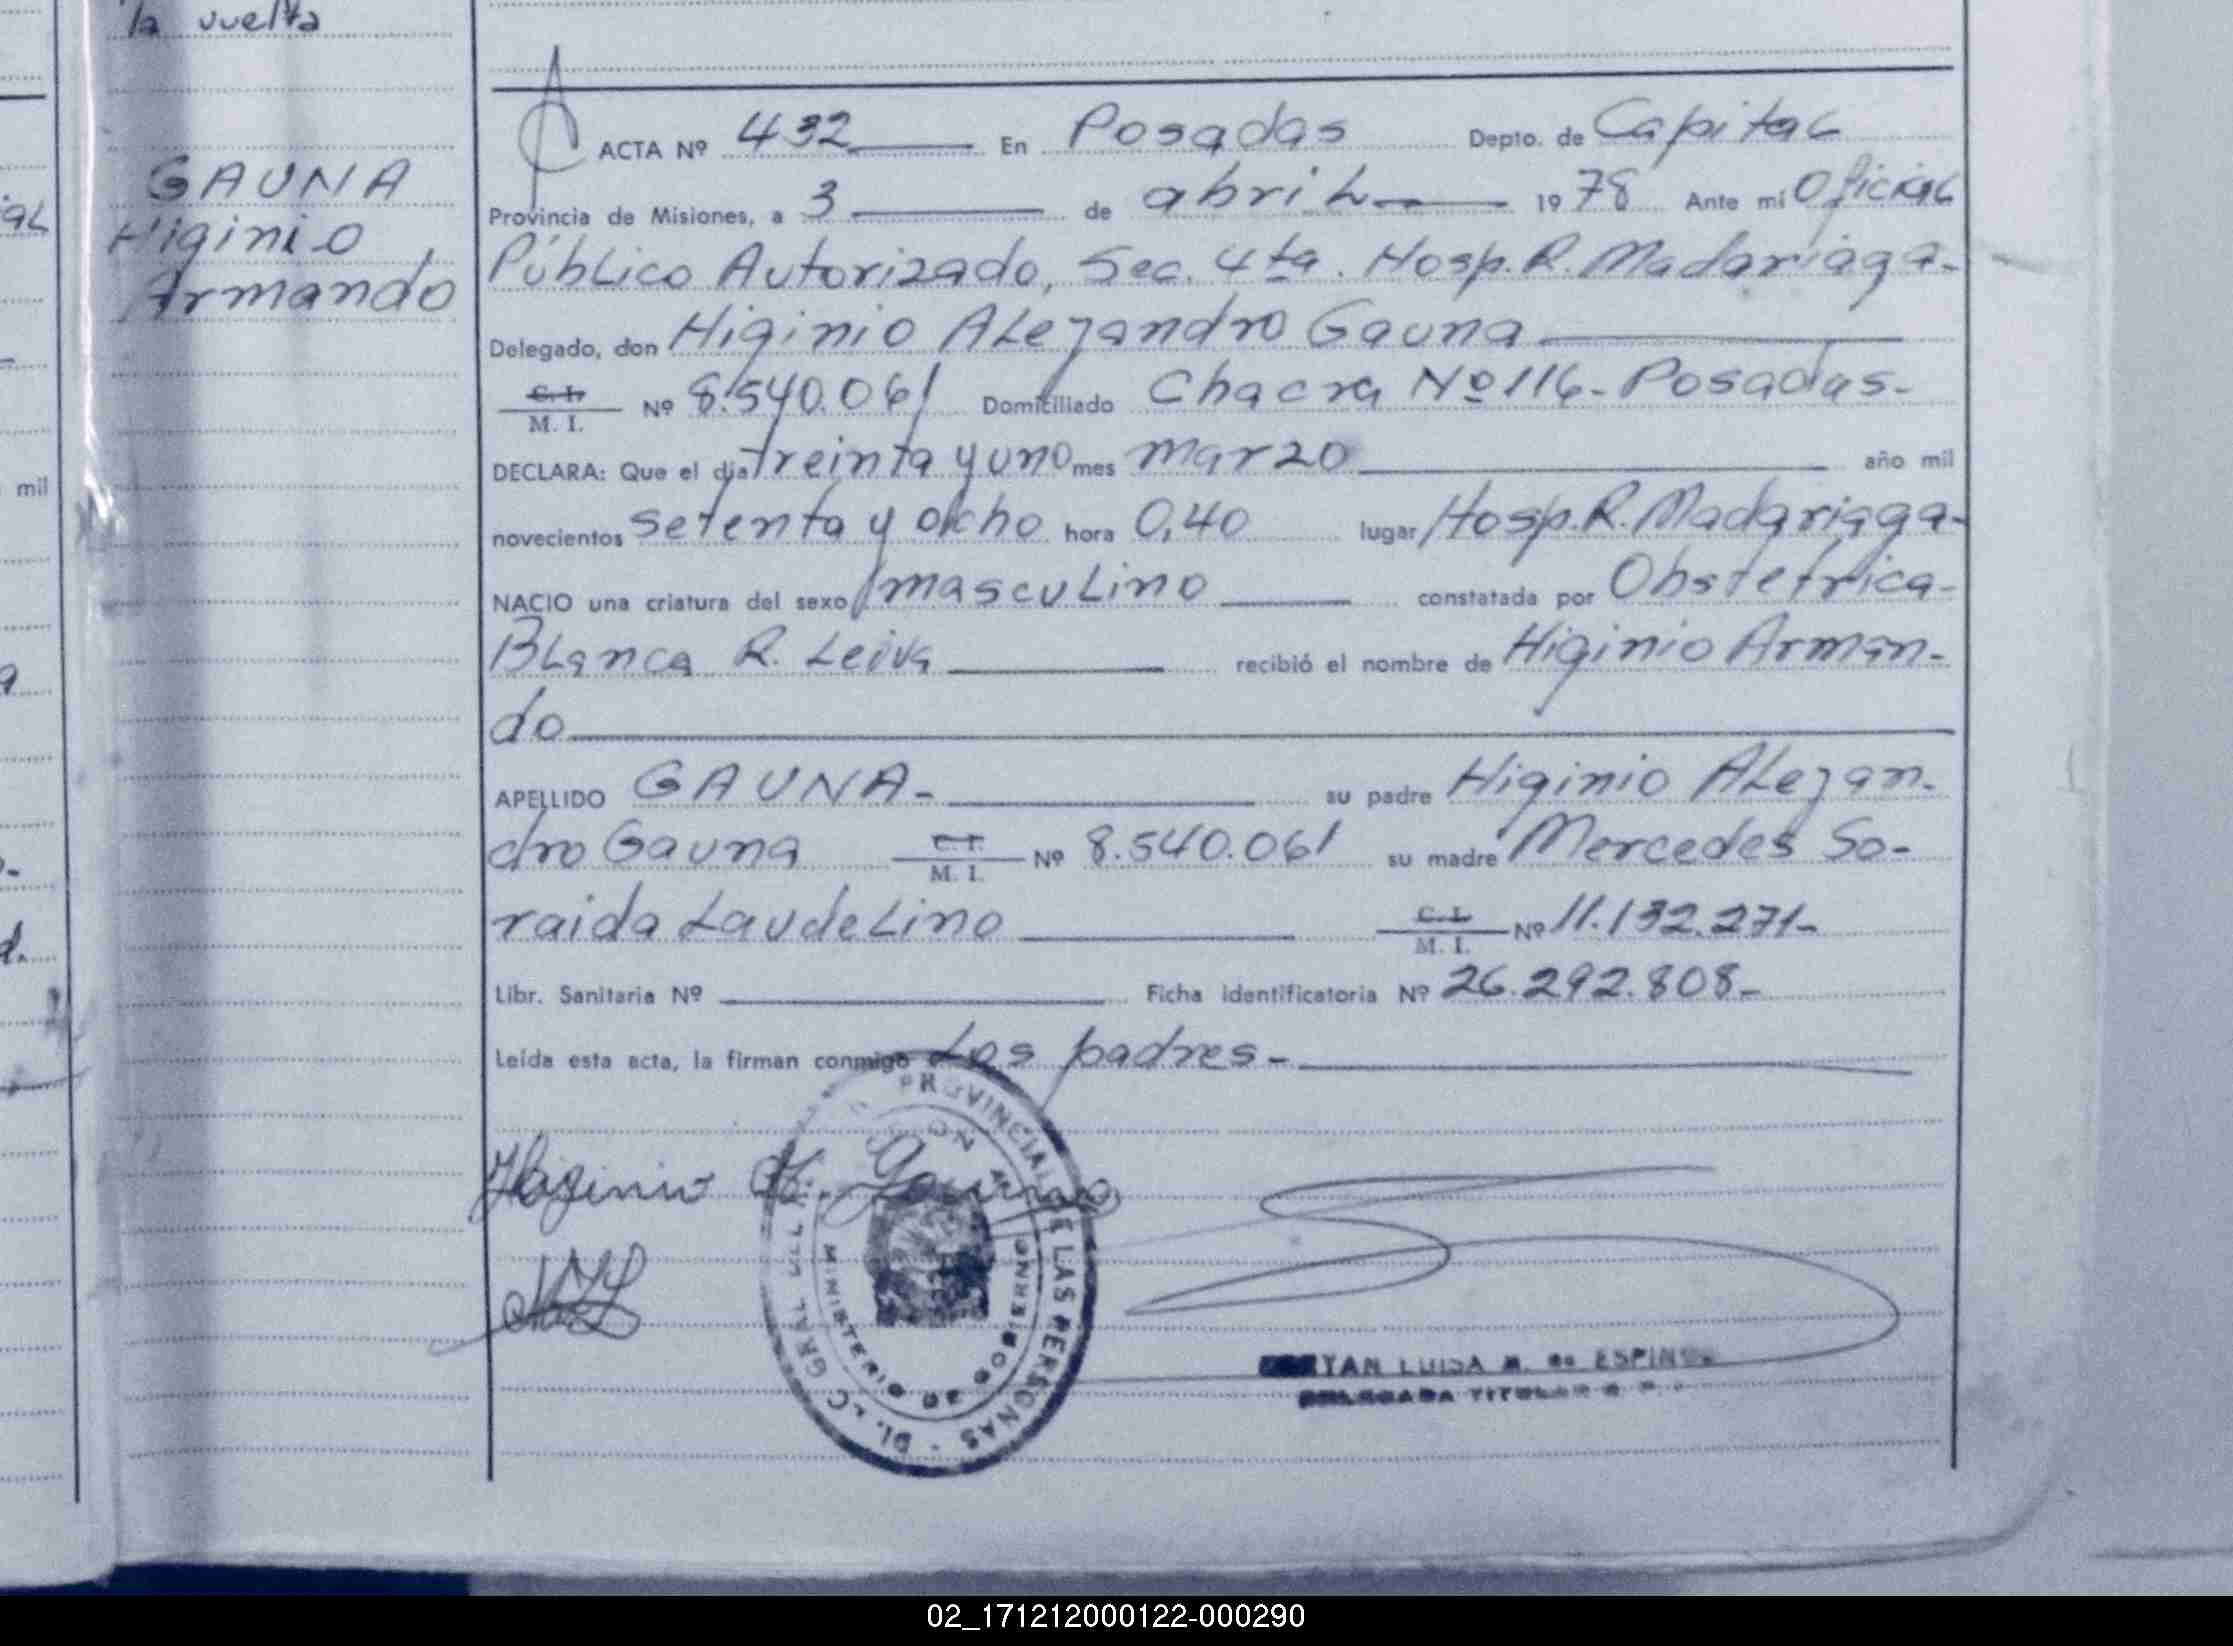 la vuelta
GAUNA
Higinio
Armando
ACTA Nº 432 En Posadas Depto. de Capital
Provincia de Misiones, a 3 de abril 1978 Ante mí Oficial
Público Autorizado, Sec. 4ta. Hosp. R. Madariaga-
Delegado, don Higinio Alejandro Gauna
C. I. M. I. Nº 8.540.061 Domiciliado Chacra Nº 116- Posadas-
DECLARA: Que el día treinta y uno mes marzo año mil
novecientos setenta y ocho hora 0,40 lugar Hosp. R. Madariaga-
NACIO una criatura del sexo masculino constatada por Obstetrica-
Blanca R. Leiva recibió el nombre de Higinio Arman-
do
APELLIDO GAUNA- su padre Higinio Alejan-
dro Gauna C. I. M. I. Nº 8.540.061 su madre Mercedes So-
raida Laudelino C. I. M. I. Nº 11.132.271-
Libr. Sanitaria Nº Ficha identificatoria Nº 26.292.808-
Leída esta acta, la firman conmigo Los padres-
Higinio A. Gauna
PROVINCIAL DE LAS PERSONAS
MINISTERIO DE GOBIERNO
LUISA M. de ESPINO
DELEGADA TITULAR
mil
02_171212000122-000290